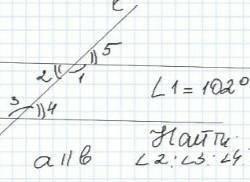 c
5
2 1
∠1 = 102°
3 4
Найти
a || b
∠2; ∠3; ∠4